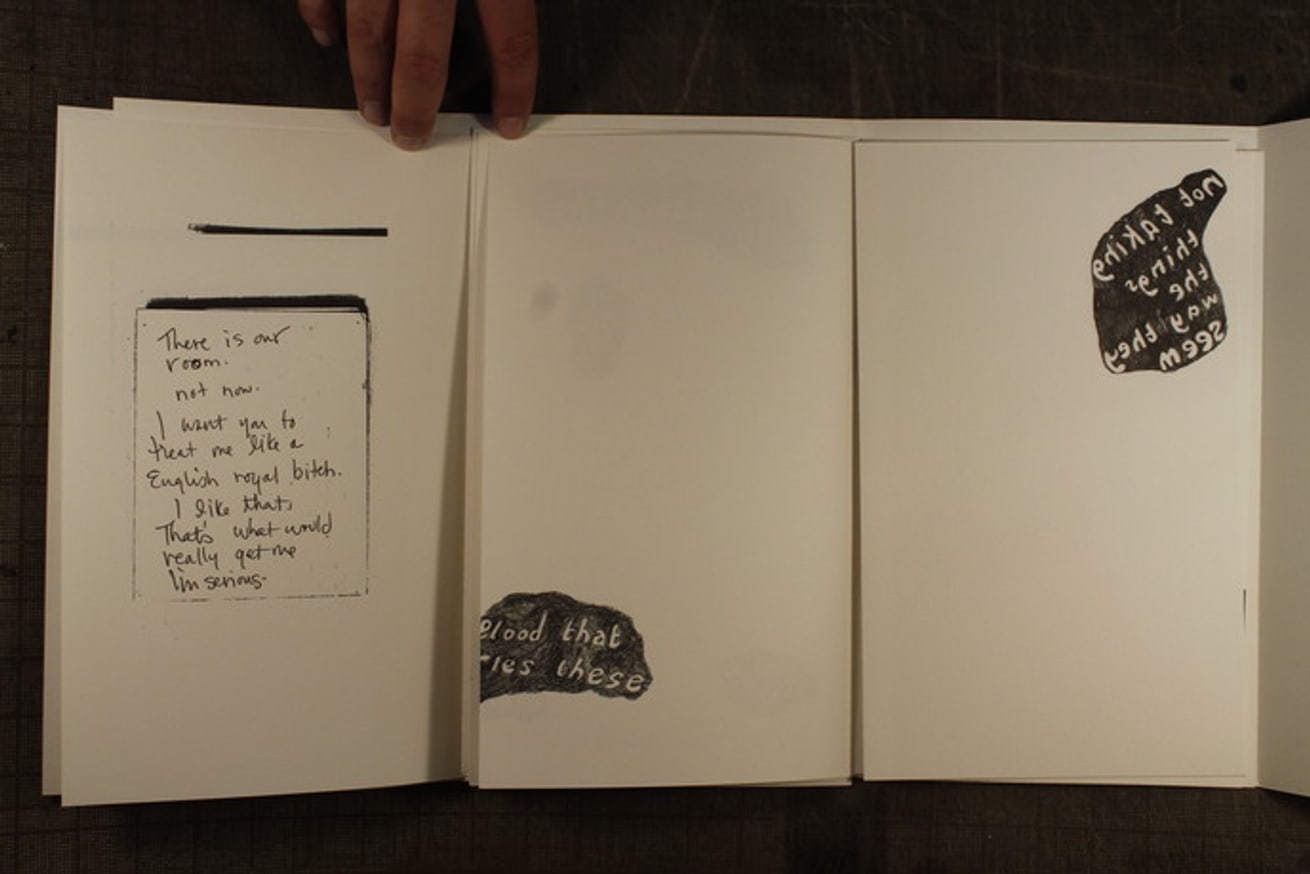 There is our
room.
not now.
I want you to
treat me like a
English royal bitch.
I like that,
That's what would
really get me
I'm serious.
blood that
ries these
not taking
things
the
way they
seem